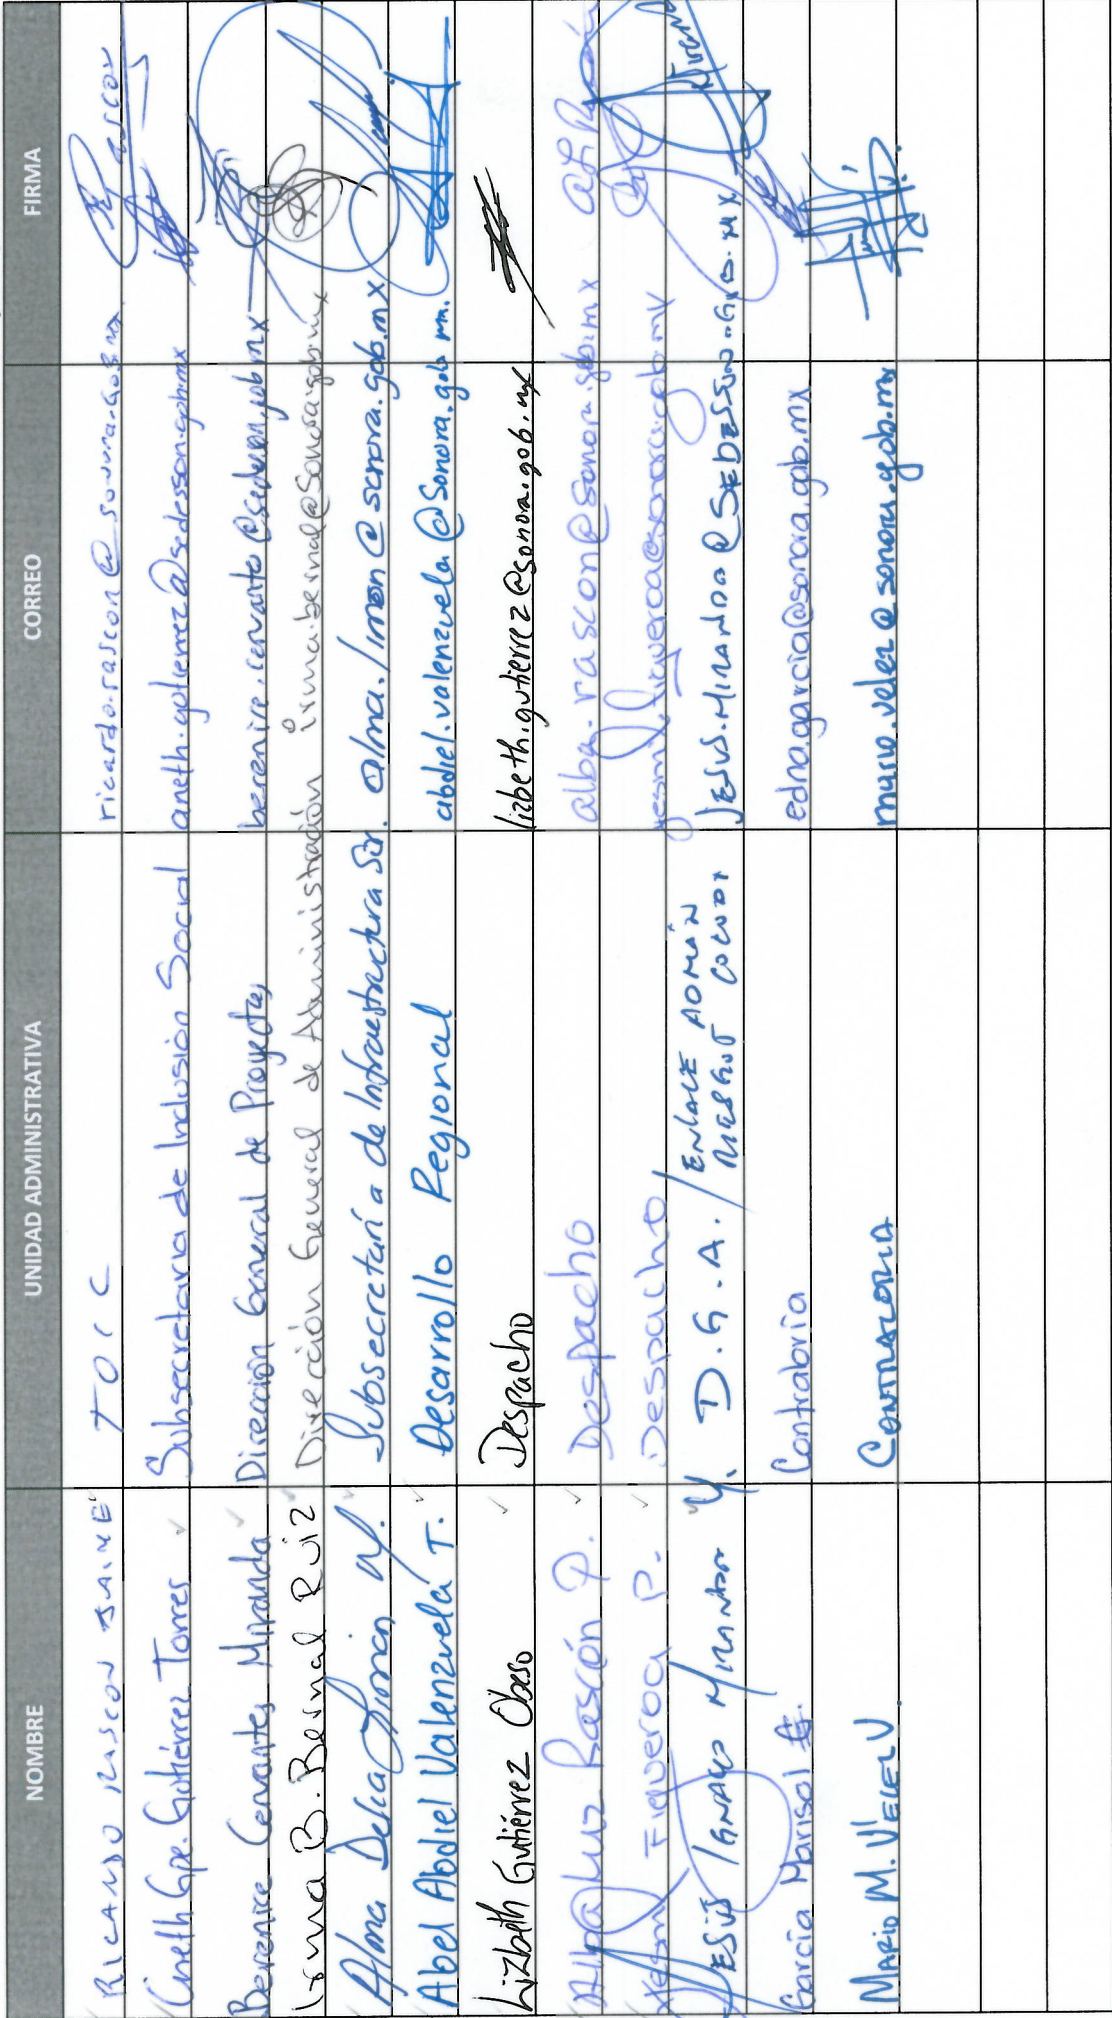 NOMBRE UNIDAD ADMINISTRATIVA CORREO FIRMA
RICARDO RASCON JAIME TOIC ricardo.rascon@sonora.gob.mx
Aneth Gpe. Gutiérrez Torres Subsecretaria de Inclusión Social aneth.gutierrez@sedesson.gob.mx
Berenice Cervantes Miranda Dirección General de Proyectos
Irma B. Bernal Ruiz Dirección General de Administración irma.bernal@sonora.gob.mx
Alma Delia Limón M. Subsecretaría de Infraestructura alma.limon@sonora.gob.mx
Abel Abdiel Valenzuela T. Desarrollo Regional abdiel.valenzuela@sonora.gob.mx.
Lizbeth Gutiérrez Obeso Despacho lizbeth.gutierrez@sonora.gob.mx
Alba Luz Rascón P. Despacho alba.rascon@sonora.gob.mx
Yesmi Figueroa P. Despacho
JESÚS IGNACIO MIRANDA D.G.A. / ENLACE ADMÓN JESUS.MIRANDA@SEDESSON.GOB.MX
García Marisol E. Contraloría edna.garcia@sonora.gob.mx
MARIO M. VÉLEZ V. CONTRALORIA mario.velez@sonora.gob.mx